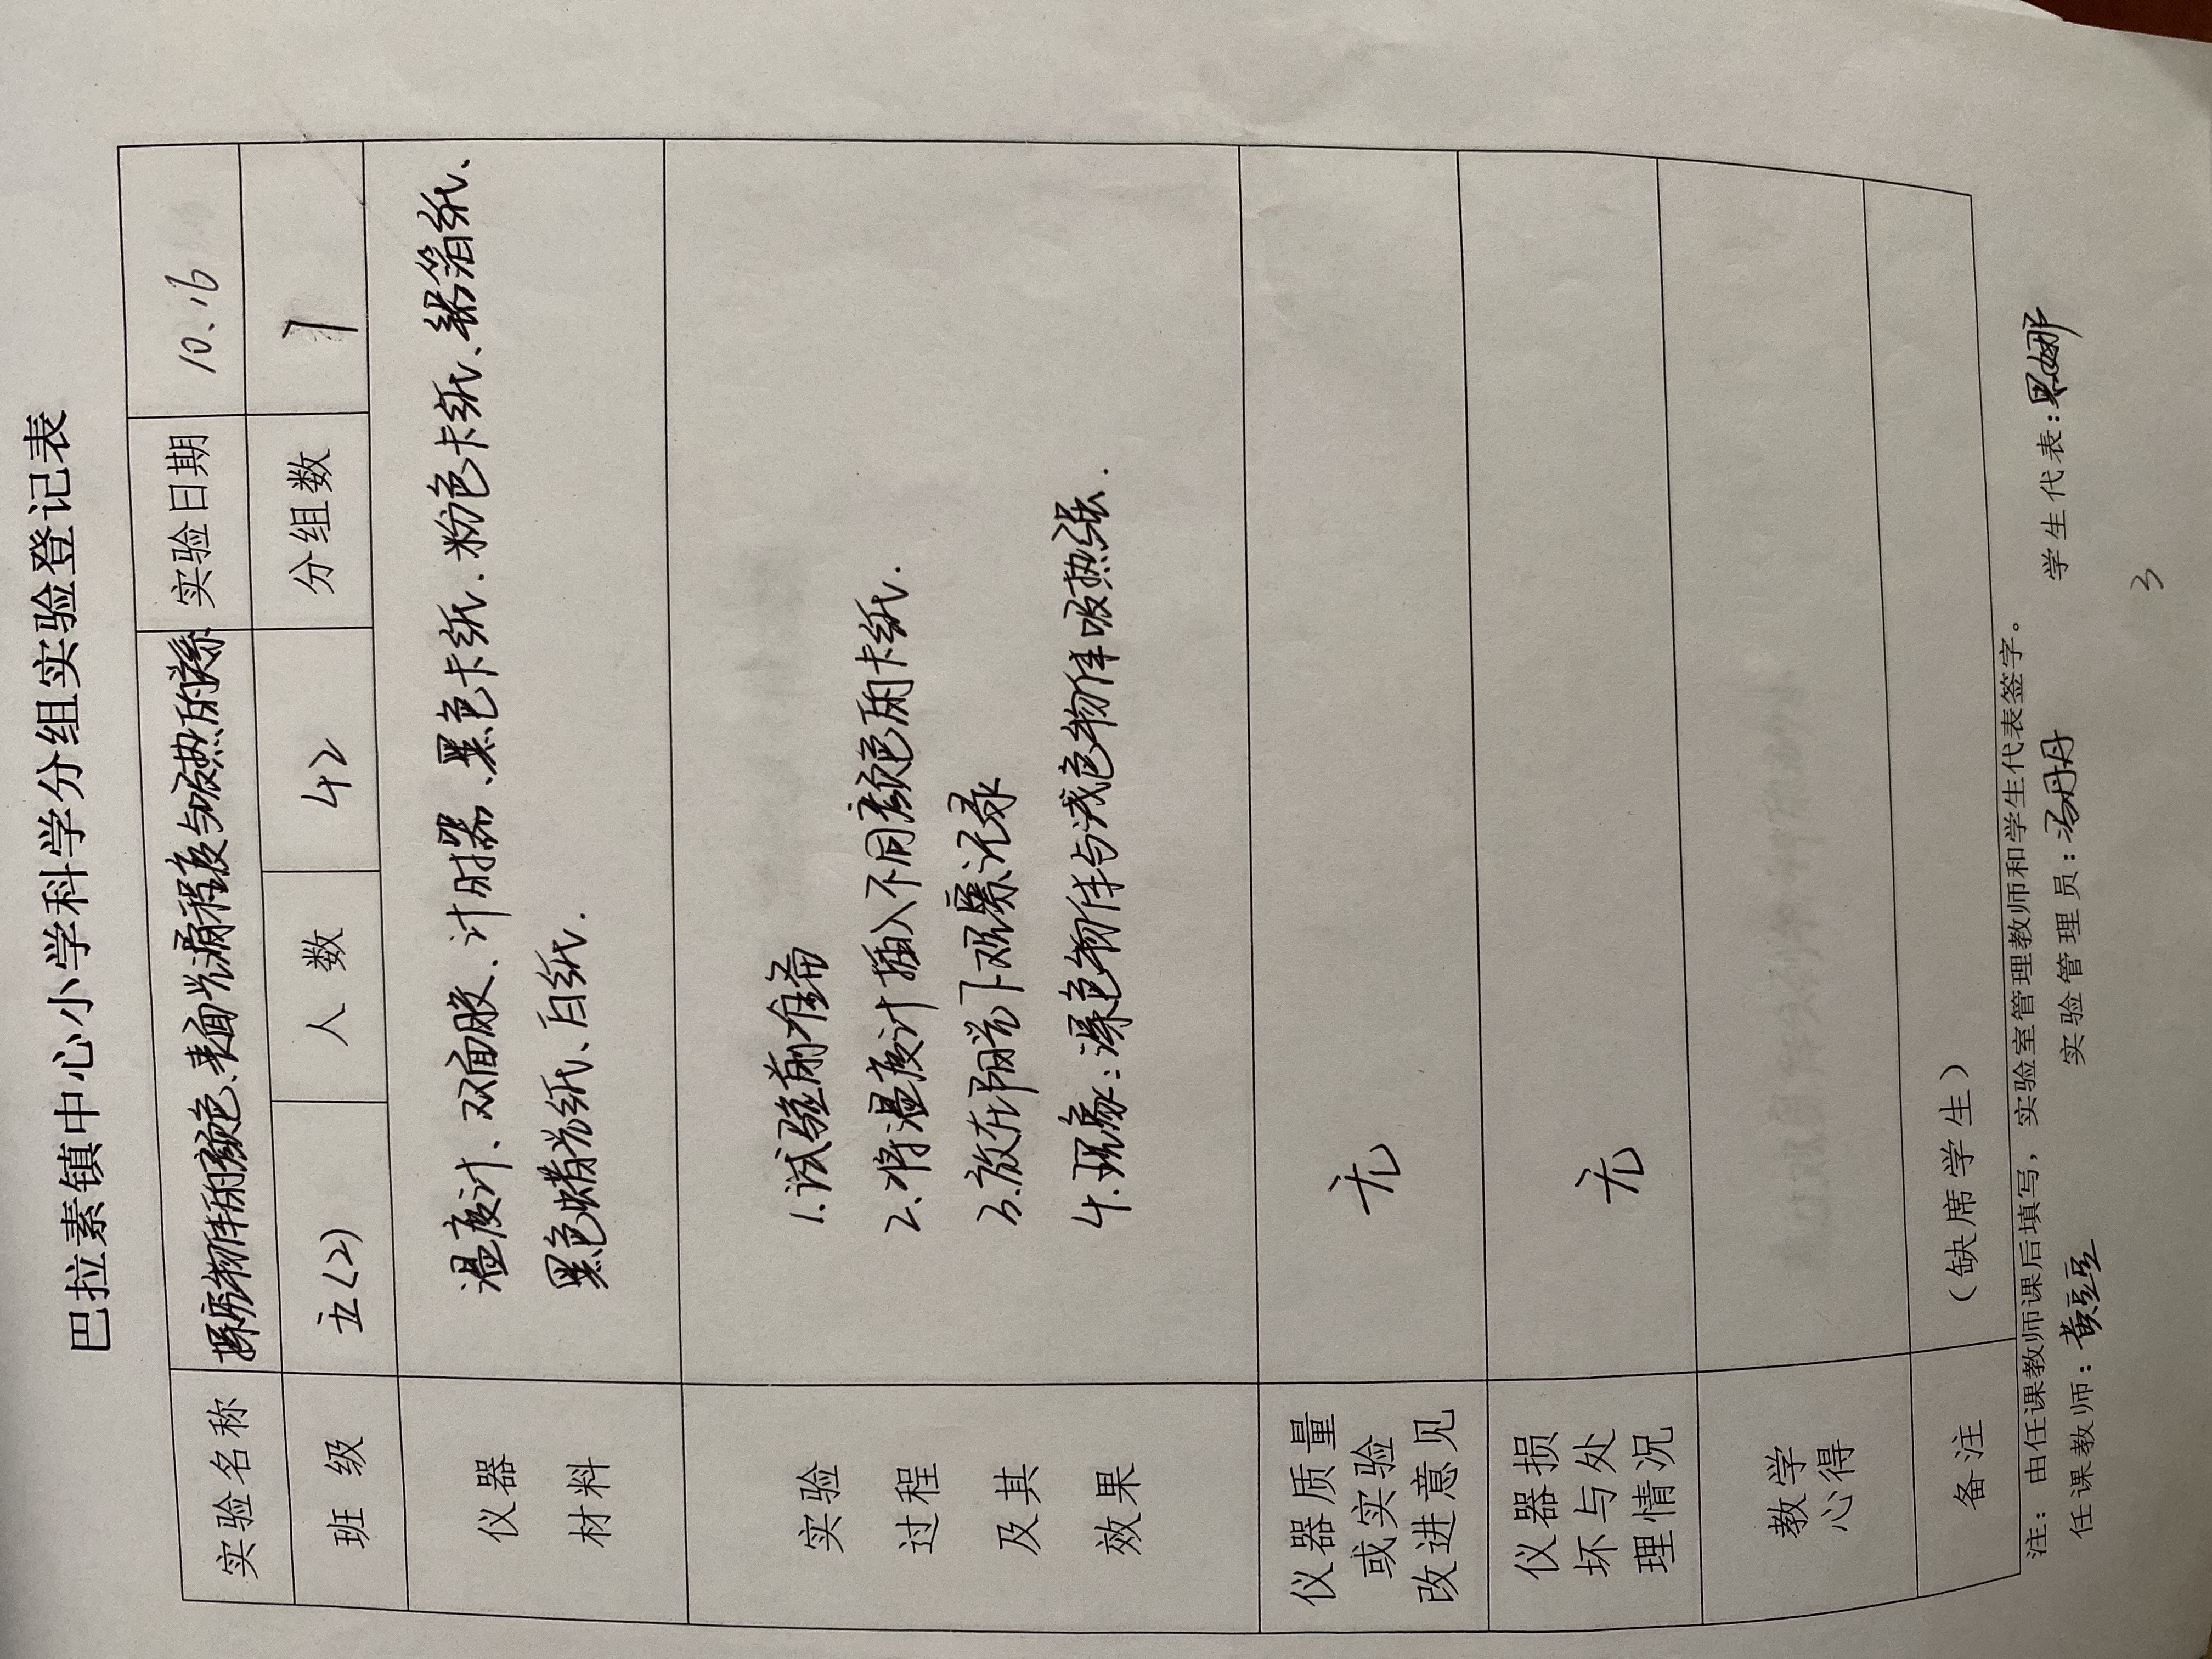 巴拉素镇中心小学科学分组实验登记表
实验名称 探究物体的颜色、表面光滑程度与吸热的关系 实验日期 10.16
班 级 五(2) 人 数 42 分组数 7
仪器 材料 温度计、双面胶、计时器、黑色卡纸、粉色卡纸、铝箔纸、
黑色蜡光纸、白纸.
实验 过程 及其 效果
1.试验前准备
2.将温度计插入不同颜色的卡纸.
3.放在阳光下观察记录
4.现象:深色物体与浅色物体吸热强.
仪器质量
或实验
改进意见
无
仪器损
坏与处
理情况
无
教学
心得
备注 (缺席学生)
注:由任课教师课后填写,实验室管理教师和学生代表签字。
任课教师:黄豆豆 实验管理员:冯丹丹 学生代表:
3